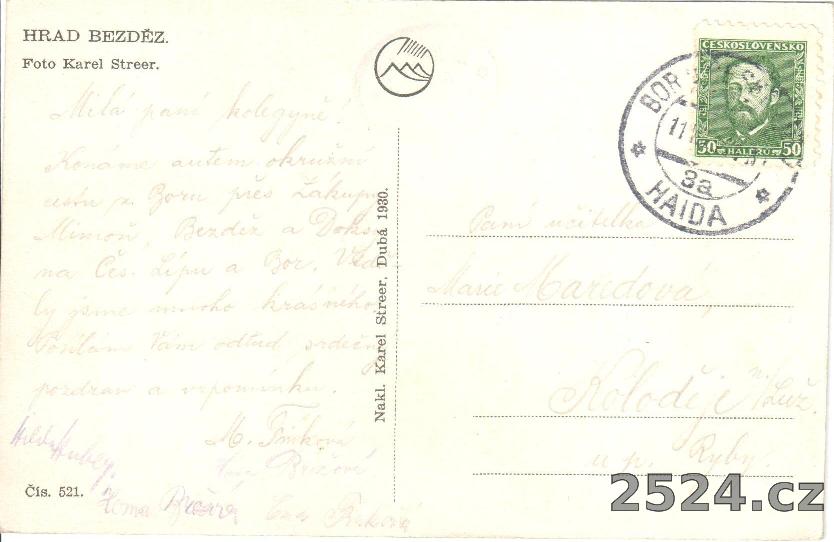 HRAD BEZDĚZ.
Foto Karel Streer.
Milá paní kolegyně!
Konáme autem okružní
cestu z Boru přes Zákupy
Mimoň, Bezděz a Doksy
na Čes. Lípu a Bor. Viděly
jsme mnoho krásného.
Posílám Vám odtud srdečný
pozdrav a vzpomínku.
M.
Čís. 521.
Nakl. Karel Streer, Dubá 1930.
ČESKOSLOVENSKO
50 HALÉŘŮ 50
BOR
11
3a
HAIDA
Paní učitelka
Marie Maredová,
Koloděje n/Luž.
u p. Ryby.
2524.cz